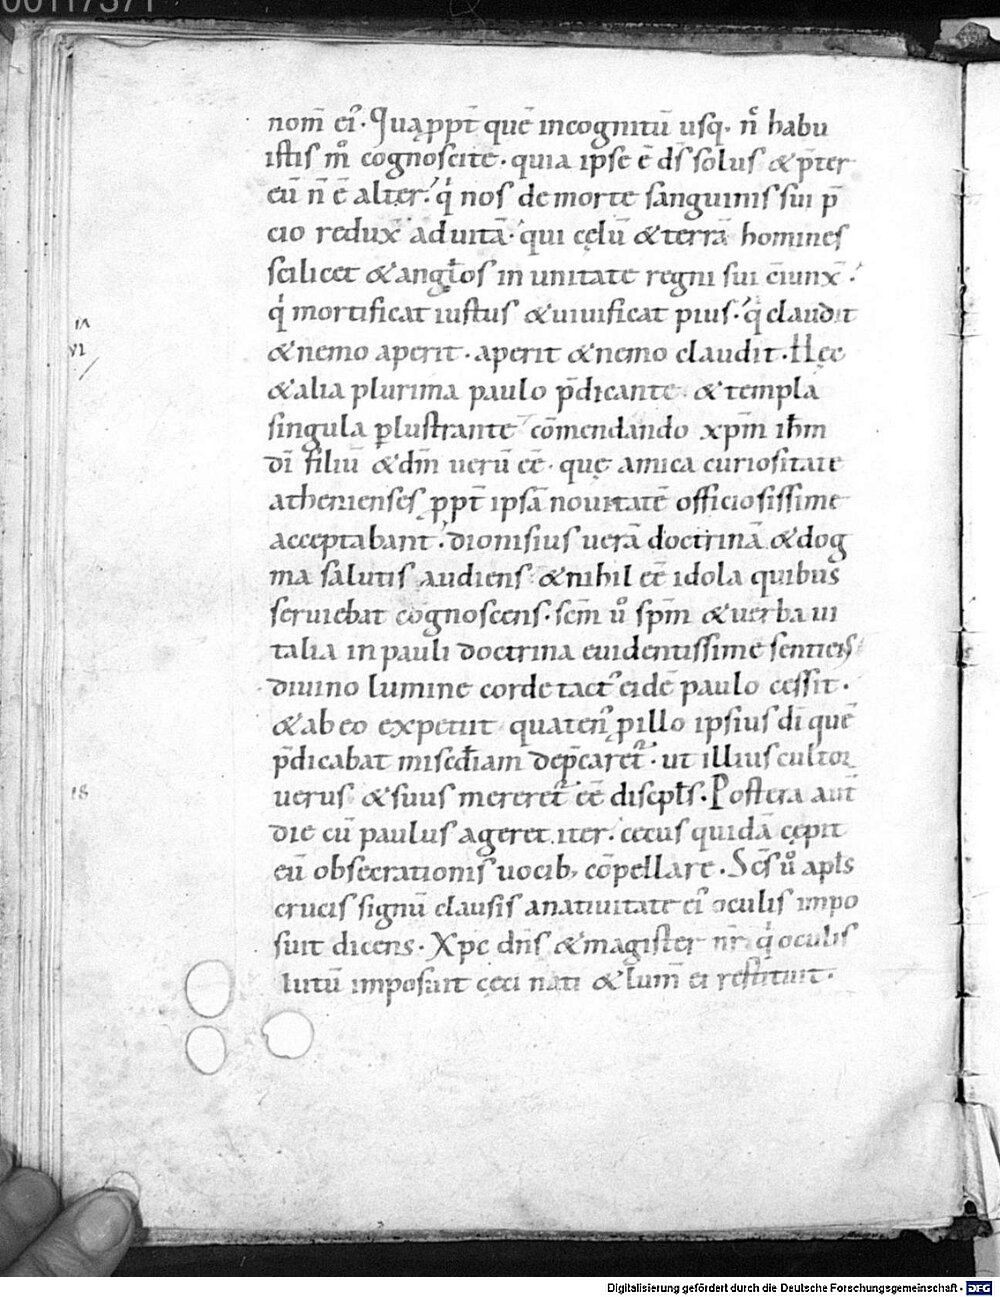 00117371
nom̄ ei᷒. Quąppt̄ quē incognitū usq. n̄ habu
istis m̊ cognoscite. quia ipse ē ds̄ solus & p̄ter
eū n̄ ē alter. q̇ nos de morte sanguinis sui p̄
cio redux̄ ad uitā. qui cęlū & terrā homines
scilicet & angłos in unitate regni sui c̄iunx̄.
q̇ mortificat iustus & uiuificat pius. q̇ claudit
IA
VI
& nemo aperit. aperit & nemo claudit. Hęc
& alia plurima paulo p̄dicante & templa
singula ꝑlustrante cōmendando xp̄m ih̄m
dī filiū & dm̄ uerū ēē. quę amica curiositate
athenienses ꝓpt̄ ipsā nouitatē officiosissime
acceptabant. dionisius uerā doctrinā & dog
ma salutis audiens & nihil ēē idola quibus
seruiebat cognoscens. scm̄ ů sp̄m & uerba ui
talia in pauli doctrina euidentissime sentiens
diuino lumine corde tact᷒ eidē paulo cessit.
& ab eo expetiit quaten᷒ ꝓ illo ipsius dī quē
p̄dicabat misc̄diam dep̄caret᷒. ut illius cultor
18
uerus & suus mereret᷒ ēē discpłs. Postera aut̄
die cū paulus ageret iter. cecus quidā cępit
eū obsecrationis uocib, cōpellare. Scs̄ ů apłs
crucis signū clausis a natiuitate ei᷒ oculis impo
suit dicens. Xpc dn̄s & magister nr̄ q̇ oculis
lutū imposuit ceci nati & lum̄ ei restituit.
Digitalisierung gefördert durch die Deutsche Forschungsgemeinschaft - DFG